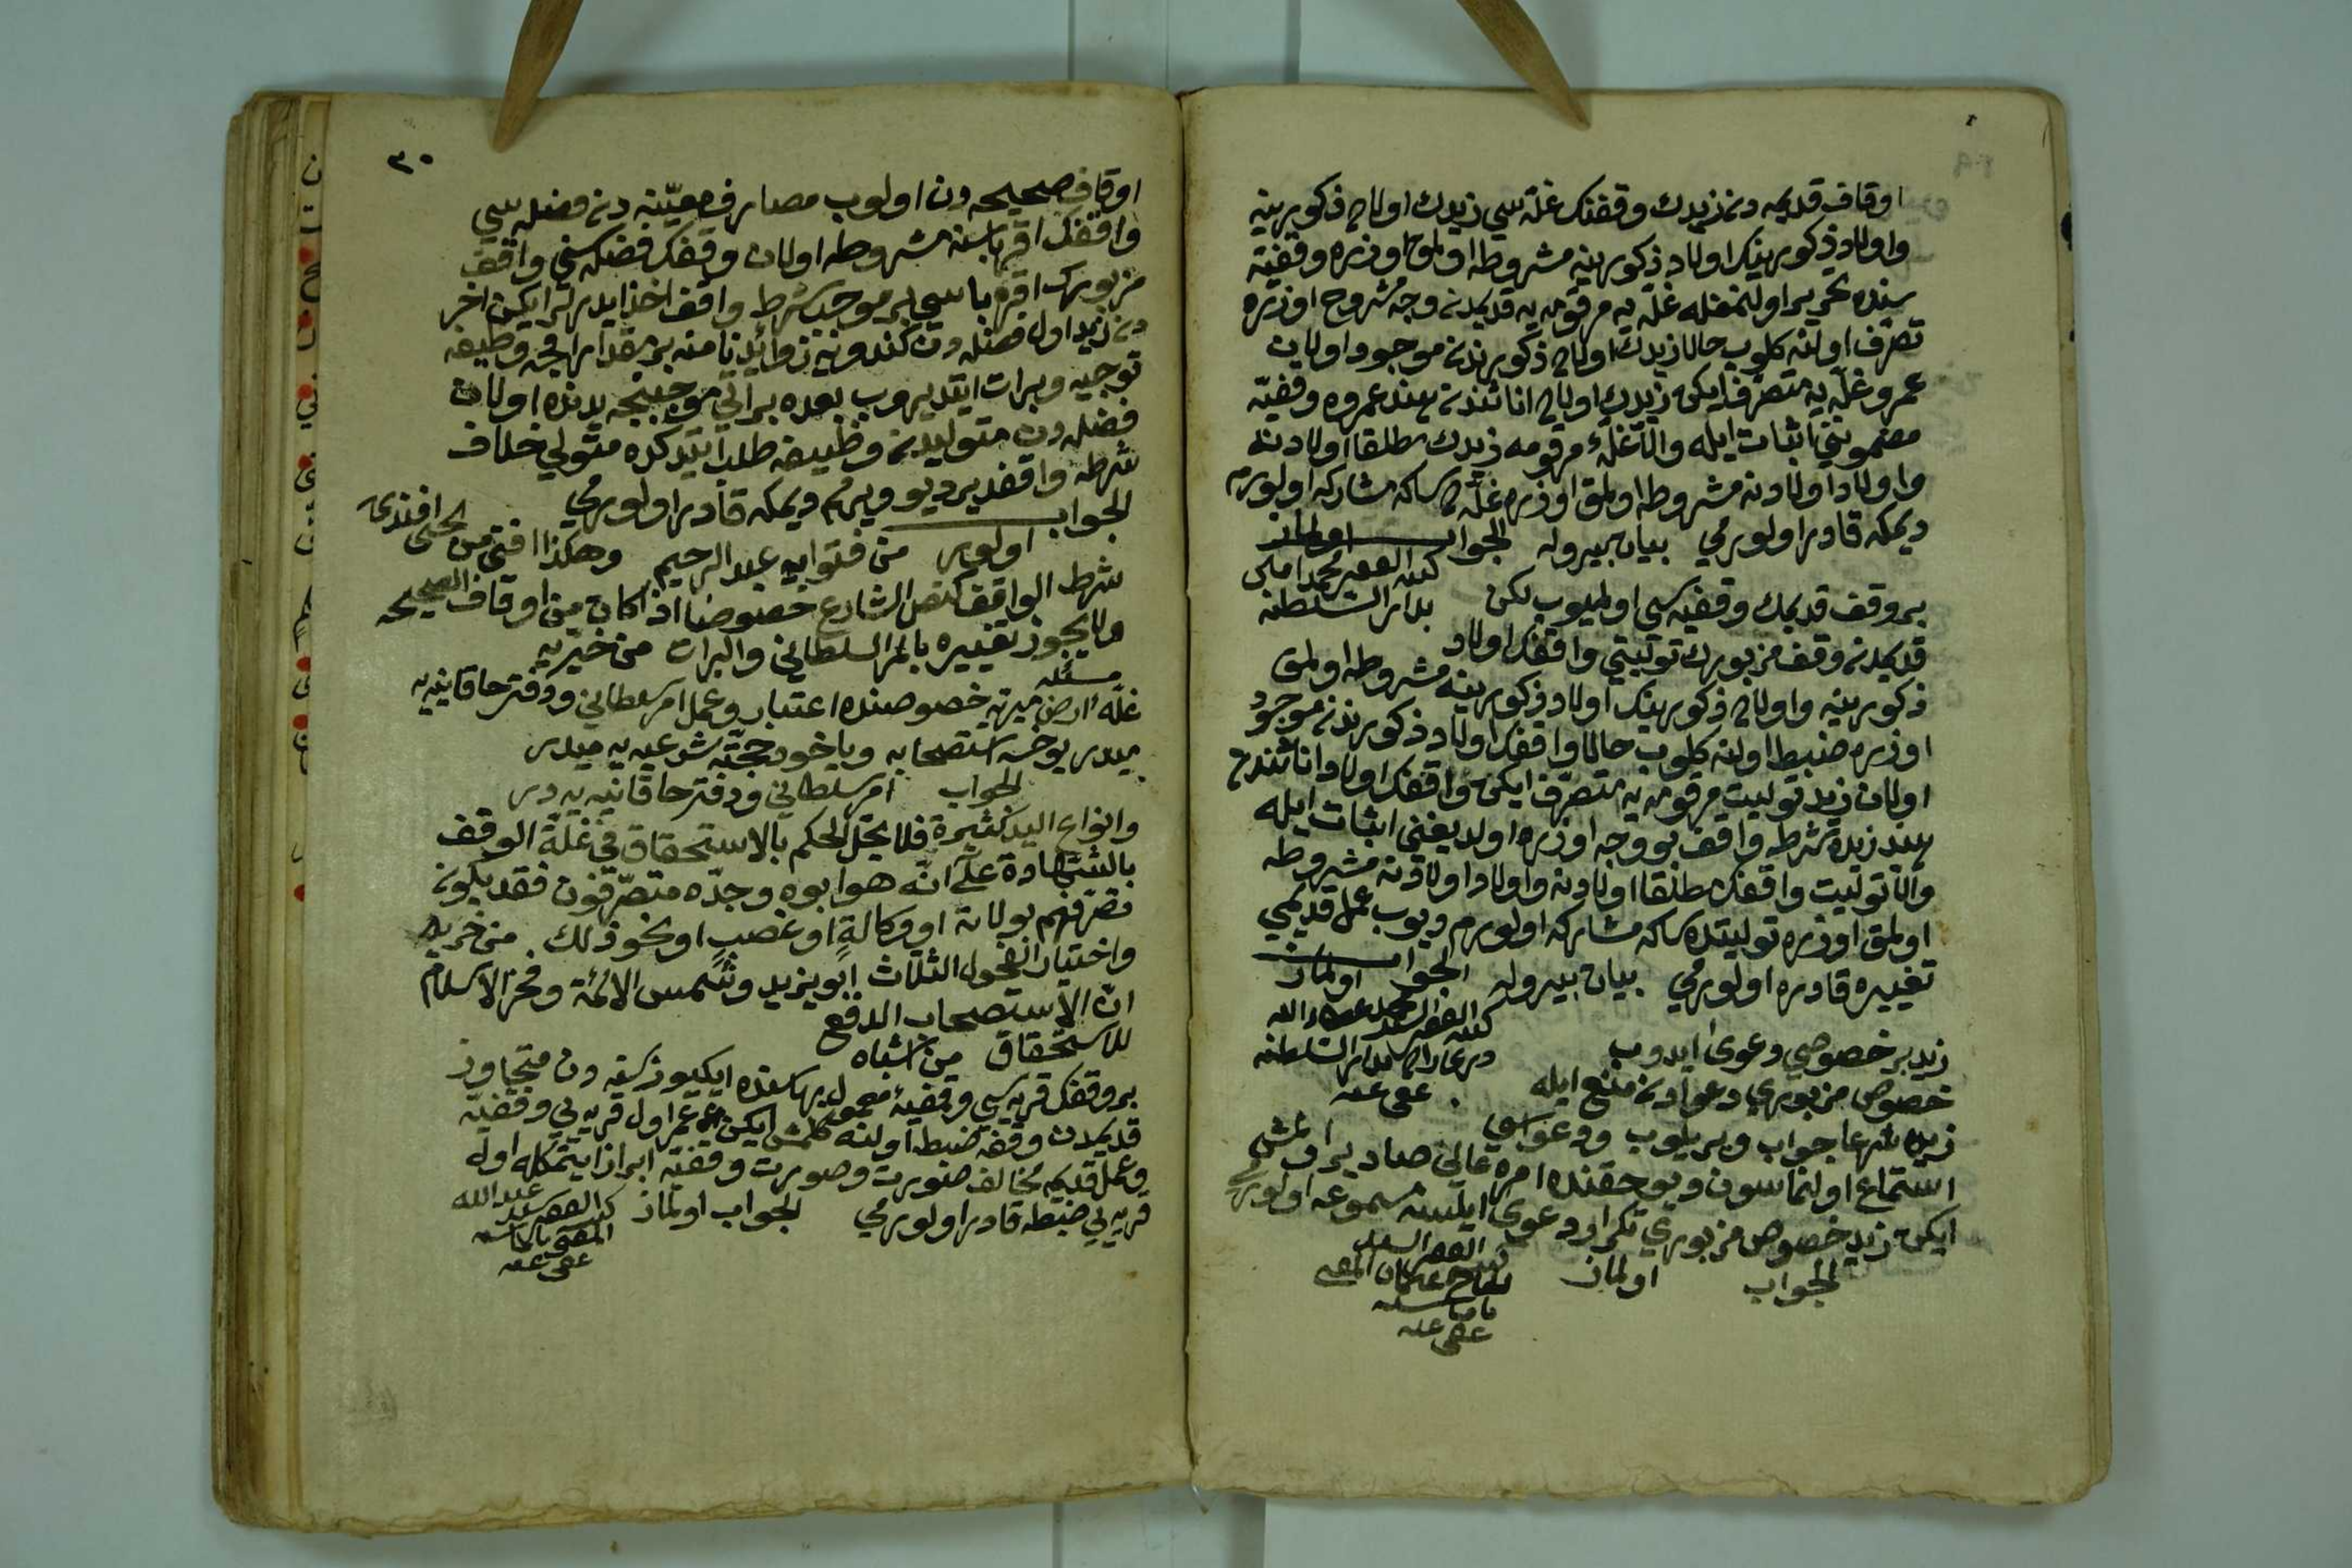 اوقاف قديمه دن زيدك وقفنك غلّه سي زيدك اولاد ذكورينه
واولاد ذكورينك اولاد ذكورينه مشروطه اولمق اوزره وقفيّه
سنده تحرير اولنمغله غلّه يه مرقومه يه قديمدن وجه مشروح اوزره
تصرّف اولنه كلوب حالا زيدك اولاد ذكورندن موجود اولان
عمرو غلّه يه متصرّف ايكن زيدك اولاد اناثندن هند عمروه وقفيّه
مضموننى اثبات ايله والّا غلّۀ مرقومه زيدك مطلقا اولادنه
واولاد اولادنه مشروطه اولمق اوزره غلّه ده سكا مشاركه اولورم
ديمكه قادر اولورمي بيان بيوريله الجواب اولماز
كتبه الفقير محمد امين
بدار السلطنه
بر وقف قديمك وقفيه سي اولميوب لكن
قديمدن وقف مزبورك توليتي واقفك اولاد
ذكورينه واولاد ذكورينك اولاد ذكورينه مشروطه اولمق
اوزره ضبط اولنه كلوب حالا واقفك اولاد ذكورندن موجود
اولان زيد توليت مرقومه يه متصرّف ايكن واقفك اولاد اناثندن
هند زيده شرط واقف بو وجه اوزره اولديغنى اثبات ايله
والّا توليت واقفك مطلقا اولادنه واولاد اولادنه مشروطه
اولمق اوزره توليتده سكا مشاركه اولورم ديوب عمل قديمي
تغييره قادره اولورمي بيان بيوريله الجواب اولماز
كتبه الفقير السيد محمد عطاء الله
بدار السلطنه
عفى عنه
زيد بر خصوصي دعوى ايدوب
خصوص مزبوري دعوادن منع ايله
زيده شرعا جواب ويريلوب ودعواسي
استماع اولنماسون ديو حقنده امر عالي صادر اولمش
ايكن زيد خصوص مزبوري تكرار دعوى ايلسه مسموعه اولورمي
الجواب اولماز
كتبه الفقير السيد
المفتي
باماسيه
عفى عنه
٣٠
اوقاف صحيحه دن اولوب مصارف معيّنه دن فضله سي
واقفك اقرباسنه مشروطه اولان وقفك فضله سني واقف
مزبورك اقرباسي بر موجب شرط واقف اخذ ايدرلر ايكن اخر
دن زيد اول فضله دن كندويه زوائد ناسنه بر مقدار اقچه وظيفه
توجيه وبرات ايتديروب بعده براتي موجبنجه يدنده اولان
فضله دن متوليدن وظيفه طلب ايتدكده متولي خلاف
شرط واقفدير ديو ويرمم ديمكه قادر اولورمي
الجواب اولور من فتواي عبد الرحيم وهكذا افتى من يحيى افندى
شرط الواقف كنص الشارع خصوصا اذا كان من اوقاف الصحيحه
ولا يجوز تغييره بالامر السلطاني والبرات من خيريه
مسئله
غلّۀ ارض ميريه خصوصنده اعتبار وعمل امر سلطاني ودفتر حاقانيه يه
ميدر يوخسه استصحابه وياخود حجّت شرعيه يه ميدر
الجواب امر سلطاني ودفتر حاقانيه يه در
وانواع اليد كثيرة فلا يحل الحكم بالاستحقاق في غلّة الوقف
بالشهادة على انّه هو ابوه وجدّه متصرّفون فقد يكون
تصرّفهم بولاية او وكالة او غصب او نحو ذلك من خيريه
واختيار الفحول الثلاث ابو يزيد وشمس الائمة وفخر الاسلام
ان الاستصحاب الدفع
للاستحقاق من اشباه
بر وقفك قريه سي وقفيۀ معمول بهاسنده ايكيوز سنه دن متجاوز
قديمدن وقفه ضبط اولنه كلمش ايكن عمرو اول قريه يي وقفيّه
وعمل قديمه مخالف صورت وصورت وقفيّه ابراز ايتمكله اول
قريه يي ضبطه قادر اولورمي الجواب اولماز
كتبه الفقير السيد عبد الله
المفتي باماسيه
عفى عنه